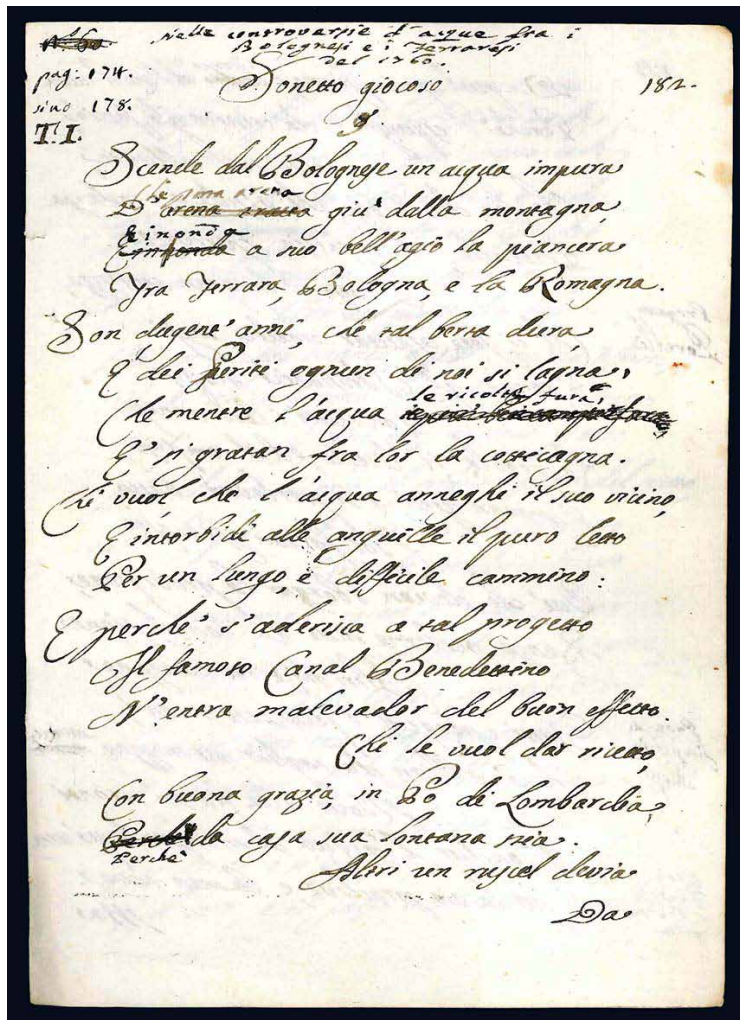 Nelle controversie d'acque fra i
Bolognesi e i Ferraresi
del 1760.
pag: 174.
sino 178.
T. I.
Sonetto giocoso
182.
Scende dal Bolognese un acqua impura
Che piena arena
D'arena tratta giù dalla montagna,
E inonda
E inonda a suo bell'agio la pianura
Fra Ferrara, Bologna, e la Romagna.
Son dugent'anni, che tal berta dura
E dei Periti ognun di noi si lagna,
le ricolte fura,
Che mentre l'acqua
E' si gratan fra lor la cotticagna.
Chi vuol, che l'acqua anneghi il suo vicino,
E intorbidi alle anguille il puro letto
Per un lungo, e difficile cammino:
E perche' s'aderisca a tal progetto
Il famoso Canal Benedettino
N'entra malevador del buon effetto.
Chi le vuol dar ricetto,
Con buona grazia, in Po di Lombardia,
Perche da casa sua lontana sia.
Perchè
Altri un ruscel devia
Da